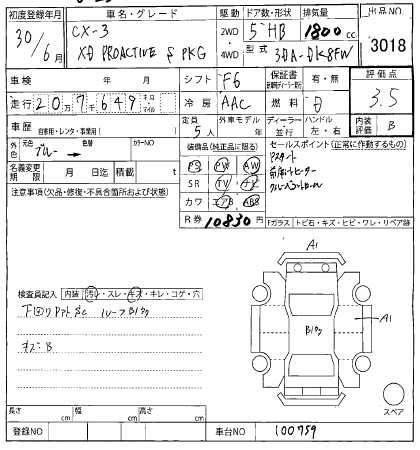 初度登録年月
30年 6月
車名・グレード
CX-3
XD PROACTIVE S PKG
駆動
2WD
4WD
ドア数・形状
5 HB
排気量
1800 cc
型式
3DA-DK8FW
出品NO
3018
車検 年 月
シフト
F6
保証書
有・無
評価点
3.5
走行
207649
キロ・マイル
冷房
AAC
燃料
D
車歴
自家用・レンタ・事業用( )
定員
5人
外車モデル
年
ディーラー
並行
ハンドル
左・右
内装評価
B
外色
元色
ブルー
色替
カラーNO
装備品(純正品に限る)
PS PW AW
SR TV ナビ
カワ エアB ABS
R券 10830円
セールスポイント(正常に作動するもの)
名義変更期限
月 日迄
積載
t
注意事項(欠品・修復・不具合箇所および状態)
Fガラス トビ石・キズ・ヒビ・ワレ・リペア跡
検査員記入
内装 汚レ・スレ・キズ・キレ・コゲ・穴
ルーフ Blク
キズ・B
A1
Blク
A1
スペア
長さ cm
幅 cm
高さ cm
登録NO
車台NO
100759